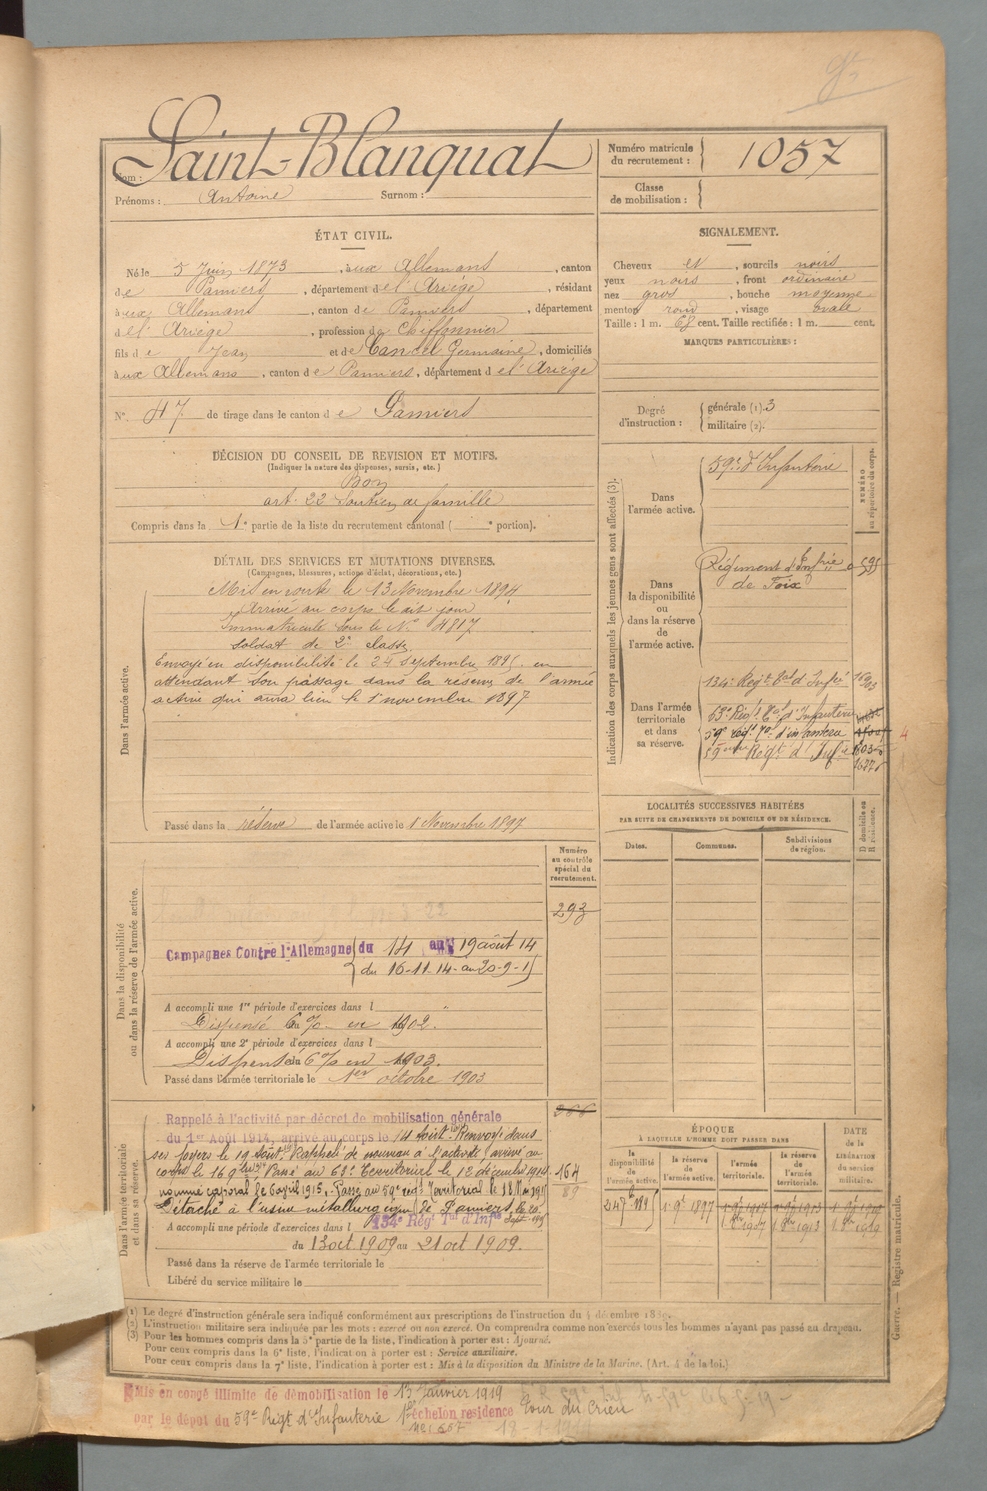 Saint-Blanquat
Nom :
Prénoms : Antoine Surnom :
Numéro matricule du recrutement : 1057
Classe de mobilisation :
ÉTAT CIVIL.
Né le 5 Juin 1873, à ux Allemans, canton
de Pamiers, département de l'Ariège, résidant
à ux Allemans, canton de Pamiers, département
de l'Ariège, profession de Chiffonnier
fils de Jean et de Cancel Germaine, domiciliés
à ux Allemans, canton de Pamiers, département de l'Ariège
N° 47 de tirage dans le canton de Pamiers
SIGNALEMENT.
Cheveux et, sourcils noirs
yeux noirs, front ordinaire
nez gros, bouche moyenne
menton rond, visage ovale
Taille : 1 m. cent. Taille rectifiée : 1 m. cent.
MARQUES PARTICULIÈRES :
Degré d'instruction : générale (1). 3
militaire (2).
DÉCISION DU CONSEIL DE REVISION ET MOTIFS.
(Indiquer la nature des dispenses, sursis, etc.)
Bon
art. 22 Soutien de famille
Compris dans la 1e partie de la liste du recrutement cantonal ( e portion).
DÉTAIL DES SERVICES ET MUTATIONS DIVERSES.
(Campagnes, blessures, actions d'éclat, décorations, etc.)
Dans l'armée active.
Mis en route le 13 Novembre 1894
Arrivé au corps le dit jour
Immatriculé sous le N° 4817
soldat de 2e classe
Envoyé en disponibilité le 24 septembre 1895 en
attendant son passage dans la réserve de l'armée
active qui aura lieu le 1 novembre 1897
Passé dans la réserve de l'armée active le 1 Novembre 1897
Indication des corps auxquels les jeunes gens sont affectés (3).
NUMÉRO au répertoire du corps.
Dans l'armée active.
59e d'Infanterie
Dans la disponibilité ou dans la réserve de l'armée active.
Régiment d'Infrie
de Foix
Dans l'armée territoriale et dans sa réserve.
134e Régt Tal d'Infie
63e Régt Tal d'Infanterie
59e régt Tal d'infanterie
59eme Régt d'Infie
LOCALITÉS SUCCESSIVES HABITÉES
PAR SUITE DE CHANGEMENTS DE DOMICILE OU DE RÉSIDENCE.
D domicile ou R résidence.
Dates. Communes. Subdivisions de région.
Dans la disponibilité ou dans la réserve de l'armée active.
Numéro au contrôle spécial du recrutement.
293
Campagnes Contre l'Allemagne du 14 au 19 août 14
du 16-11-14 - au 20-9-15
A accompli une 1re période d'exercices dans l
Dispensé 6 % en 1902.
A accompli une 2e période d'exercices dans l
Dispensé du 6 % en 1903.
Passé dans l'armée territoriale le 1er octobre 1903
Dans l'armée territoriale et dans sa réserve.
Rappelé à l'activité par décret de mobilisation générale
du 1er Août 1914, arrivé au corps le 14 Août. Renvoyé dans
ses foyers le 19 Août. Rappelé de nouveau à l'activité, arrivé au
corps le 16 9bre. Passé au 63e Territorial le 12 décembre 1914.
nommé caporal le 6 avril 1915. Passé au 59e régt Territorial le 18 Mai 1915
Détaché à l'usine métallurgique de Pamiers le 20 Sept. 1915
164
89
A accompli une période d'exercices dans l 134e Régt Tal d'Infie
du 13 oct 1909 au 21 oct 1909.
Passé dans la réserve de l'armée territoriale le
Libéré du service militaire le
ÉPOQUE
À LAQUELLE L'HOMME DOIT PASSER DANS
la disponibilité de l'armée active.
la réserve de l'armée active.
l'armée territoriale.
la réserve de l'armée territoriale.
DATE de la LIBÉRATION du service militaire.
24 7bre 1895
1 9bre 1897
Guerre. — Registre matricule.
(1) Le degré d'instruction générale sera indiqué conformément aux prescriptions de l'instruction du 4 décembre 1889.
(2) L'instruction militaire sera indiquée par les mots : exercé ou non exercé. On comprendra comme non exercés tous les hommes n'ayant pas passé au drapeau.
(3) Pour les hommes compris dans la 5e partie de la liste, l'indication à porter est : Ajourné.
Pour ceux compris dans la 6e liste, l'indication à porter est : Service auxiliaire.
Pour ceux compris dans la 7e liste, l'indication à porter est : Mis à la disposition du Ministre de la Marine. (Art. 4 de la loi.)
Mis en congé illimité de démobilisation le 13 Janvier 1919
par le dépôt du 59e Régt d'Infanterie 1er échelon résidence Tour du Crieu